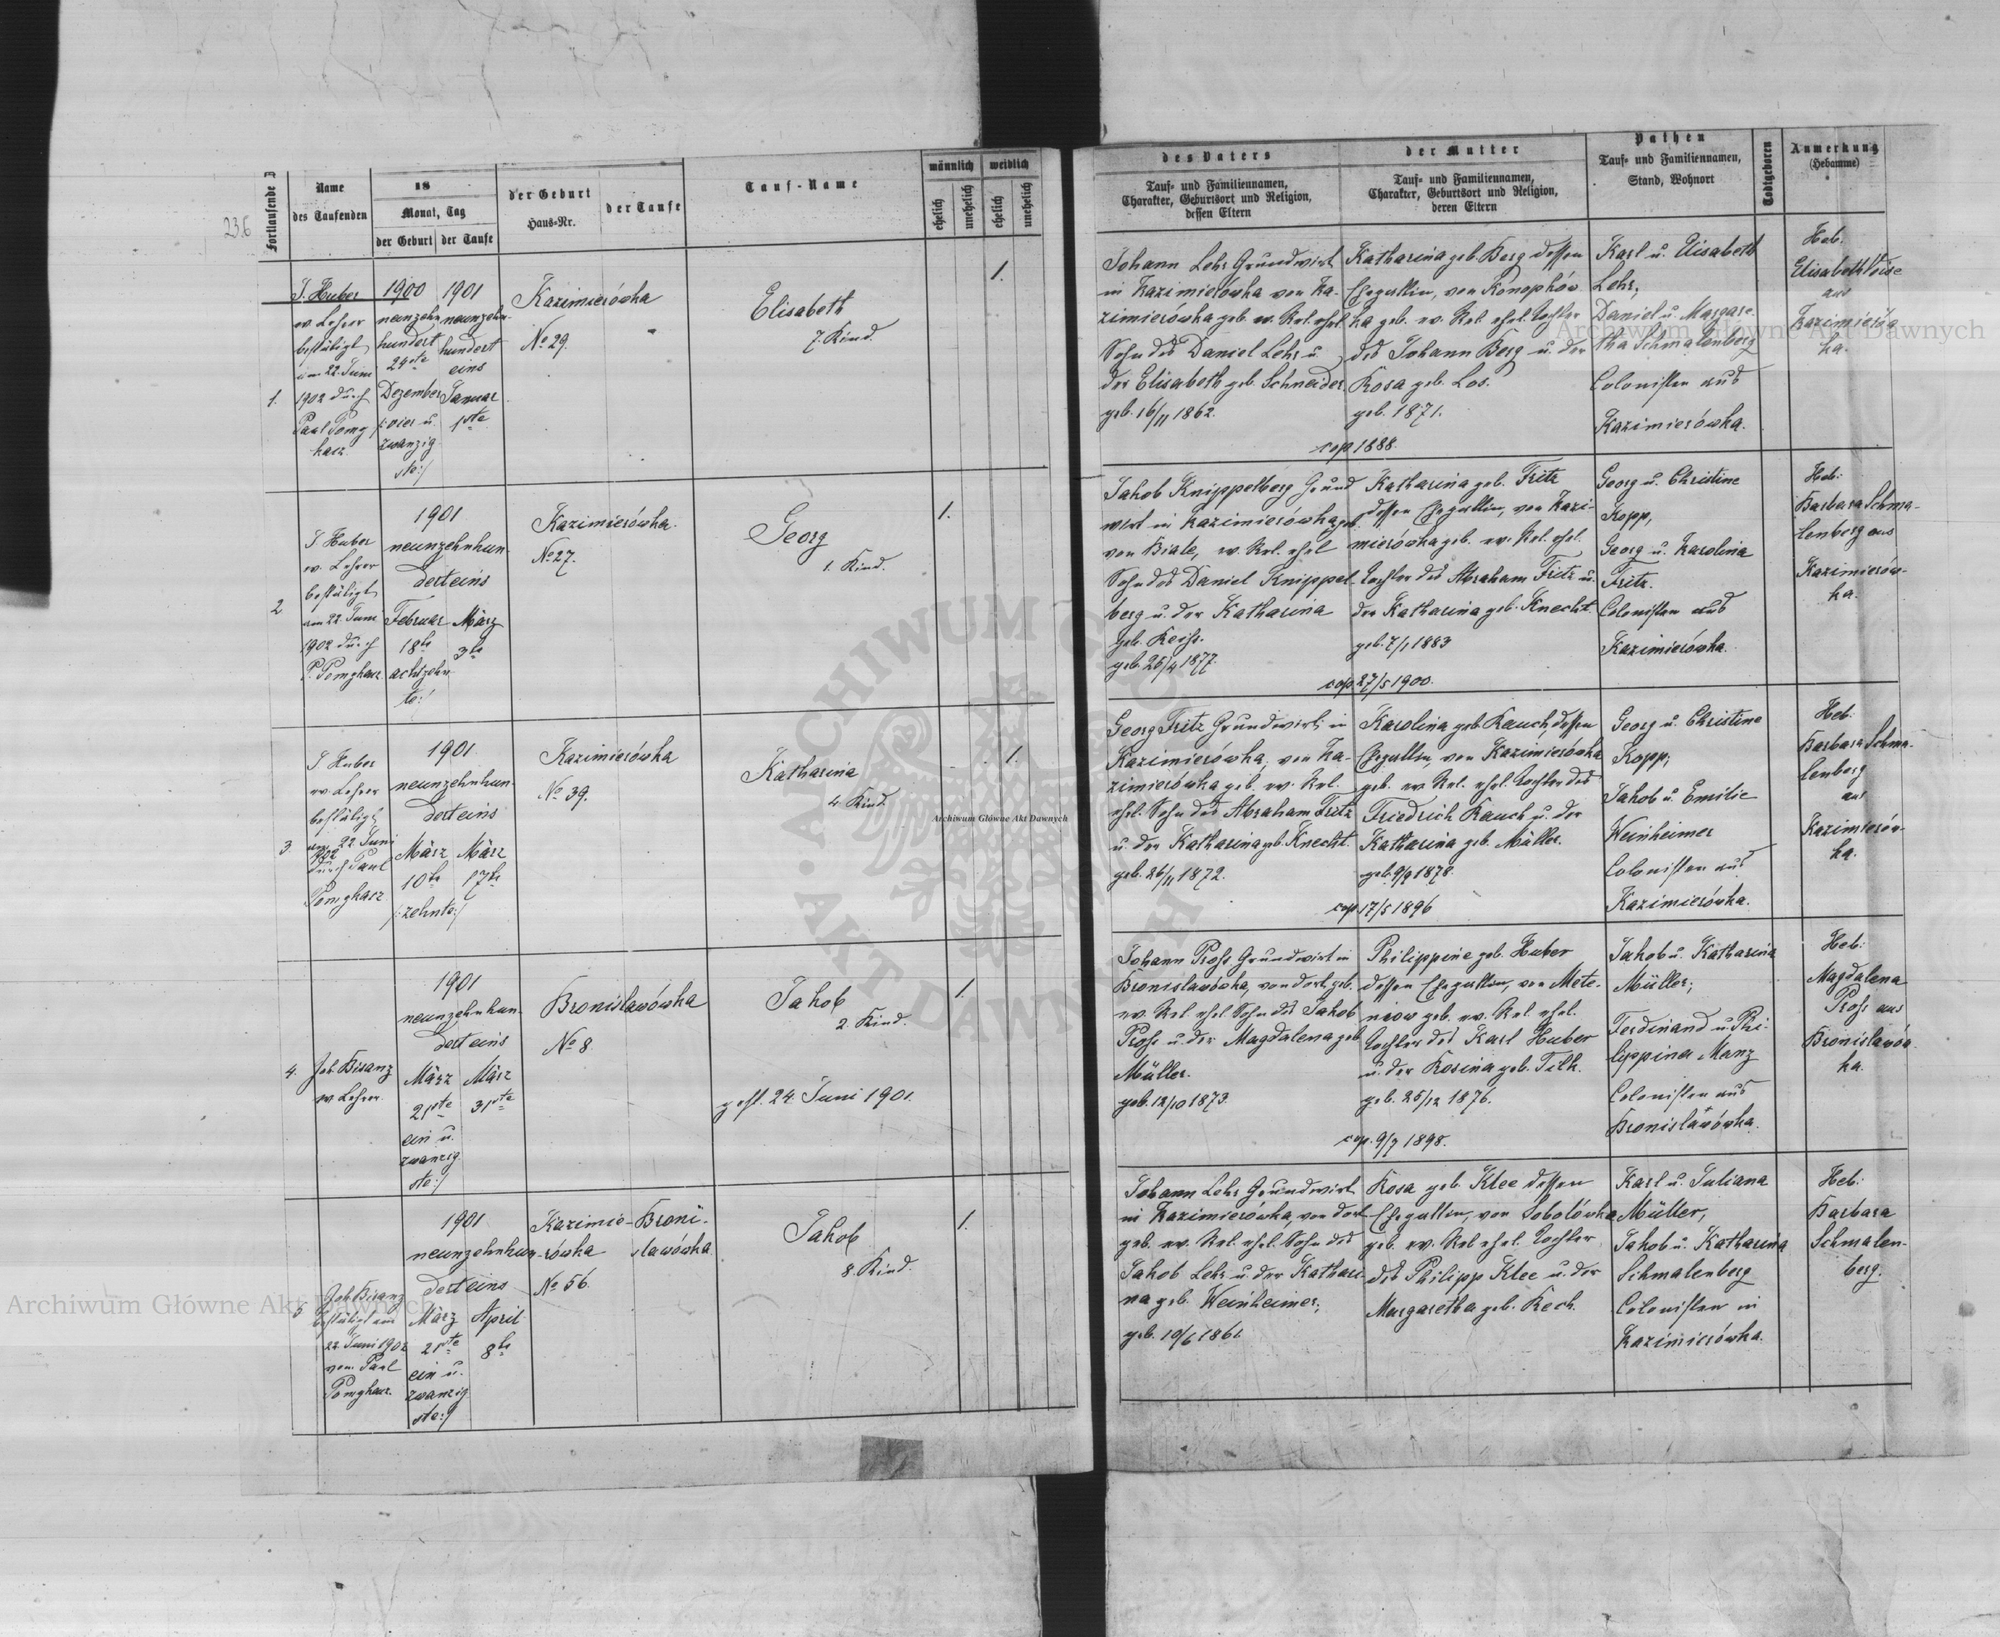 236
Fortlaufende
Name
des Taufenden
18
Monat, Tag
der Geburt
der Taufe
der Geburt
Haus-Nr.
der Taufe
Tauf-Name
männlich
weiblich
ehelich
unehelich
ehelich
unehelich
des Vaters
Tauf- und Familiennamen,
Charakter, Geburtsort und Religion,
dessen Eltern
der Mutter
Tauf- und Familiennamen,
Charakter, Geburtsort und Religion,
deren Eltern
Pathen
Tauf- und Familiennamen,
Stand, Wohnort
Todtgeboren
Anmerkung
(Hebamme)
1.
J. Huber
ev. Lehrer
bestätigt
am 22. Juni
1902 durch
Paul Pomg
hacz
1900
neunzehn
hundert
24ste
Dezember
/:vier u.
zwanzig
ste:/
1901
neunzehn
hundert
eins
Januar
1ste
Kazimierówka
No 29.
"
Elisabeth
7. Kind.
1.
Johann Lehr Grundwirt
in Kazimierówka von Ka-
zimierówka geb. ev. Rel. ehel
Sohn des Daniel Lehr u
der Elisabeth geb. Schneider
geb. 16/11 1862.
Katharina geb. Berg dessen
Ehegattin, von Konopków
ka geb. ev. Rel. ehel. Tochter
des Johann Berg u. der
Rosa geb. Los.
geb. 1871.
cop 1888.
Karl u. Elisabeth
Lehr;
Daniel u. Margare-
tha Schmalenberg
Colonisten aus
Kazimierówka.
Heb.
Elisabeth
aus
Kazimierów
ka.
2
J. Huber
ev. Lehrer
bestätigt
am 22. Juni
1902 durch
P. Pomghacz
1901
neunzehnhun-
derteins
Februar
18te
achtzehn
te!
März
3te
Kazimierówka.
No 27.
Georg
1. Kind.
1.
Jakob Knippelberg Grund
wirt in Kazimierówka geb.
von Biale, ev. Rel. ehel
Sohn des Daniel Knippel
berg u. der Katharina
geb. Reiss.
geb. 25/4 1877.
Katharina geb. Fritz
dessen Ehegattin, von Kazi-
mierówka geb. ev. Rel. ehel.
Tochter des Abraham Fritz u.
der Katharina geb. Knecht
geb. 7/1 1883
cop 27/5 1900.
Georg u. Christine
Kopp,
Georg u. Karolina
Fritz.
Colonisten aus
Kazimierówka.
Heb:
Barbara Schma-
lenberg aus
Kazimierów-
ka.
3
J Huber
ev Lehrer
bestätigt
am 22 Juni
1902
durch Paul
Pomghacz
1901
neunzehnhun-
derteins
März
10te
/:zehnte:/
März
17te
Kazimierówka
No 39.
Katharina
4. Kind.
1.
Georg Fritz Grundwirt in
Kazimierówka, von Ka-
zimierówka geb. ev. Rel.
ehel. Sohn des Abraham Fritz
u. der Katharina geb. Knecht.
geb. 26/11 1872.
Karolina geb. Rauch, dessen
Ehegattin, von Kazimierówka
geb. ev. Rel. ehel. Tochter des
Friedrich Rauch u. der
Katharina geb. Müller.
geb. 9/9 1878.
cop 17/5 1896
Georg u. Christine
Kopp;
Jakob u. Emilie
Weinheimer
Colonisten aus
Kazimierówka.
Heb:
Barbara Schma-
lenberg
aus
Kazimierów-
ka.
4.
Joh Bisanz
ev Lehrer
1901
neunzehnhun-
derteins
März
21ste
ein u.
zwanzig
ste:/
März
31ste
Bronislawówka
No 8
Jakob
2. Kind.
gest. 24. Juni 1901.
1.
Johann Pross Grundwirt in
Bronislawówka, von dort geb.
ev. Rel ehel Sohn des Jakob
Pross u. der Magdalena geb
Müller.
geb. 12/10 1873.
Philippine geb. Huber
dessen Ehegattin, von Mete-
niow geb. ev. Rel. ehel.
Tochter des Karl Huber
u. der Rosina geb. Filk.
geb. 25/12 1876.
cop. 9/7 1898.
Jakob u. Katharina
Müller;
Ferdinand u. Phi-
lippina Manz
Colonisten aus
Bronislawówka.
Heb:
Magdalena
Pross aus
Bronislawów
ka.
5
Joh Bisanz
bestätigt am
22 Juni 1902
von Paul
Pomghacz.
1901
neunzehnhun-
derteins
März
21ste
ein u.
zwanzig
ste:/
April
8te
Kazimie-
rówka
No 56.
Broni-
slawówka
Jakob
8. Kind.
1.
Johann Lehr Grundwirt
in Kazimierówka, von dort
geb. ev. Rel. ehel. Sohn des
Jakob Lehr u. der Kathari-
na geb. Weinheimer;
geb. 10/6 1861
Rosa geb. Klee dessen
Ehegattin, von Sobolówka
geb. ev. Rel ehel. Tochter
des Philipp Klee u. der
Margaretha geb. Rech.
Karl u. Juliana
Müller,
Jakob u. Katharina
Schmalenberg
Colonisten in
Kazimierówka.
Heb:
Barbara
Schmalen-
berg.
Archiwum Główne Akt Dawnych
Archiwum Główne Akt Dawnych
Archiwum Główne Akt Dawnych
ARCHIWUM
AKT DAWNYCH